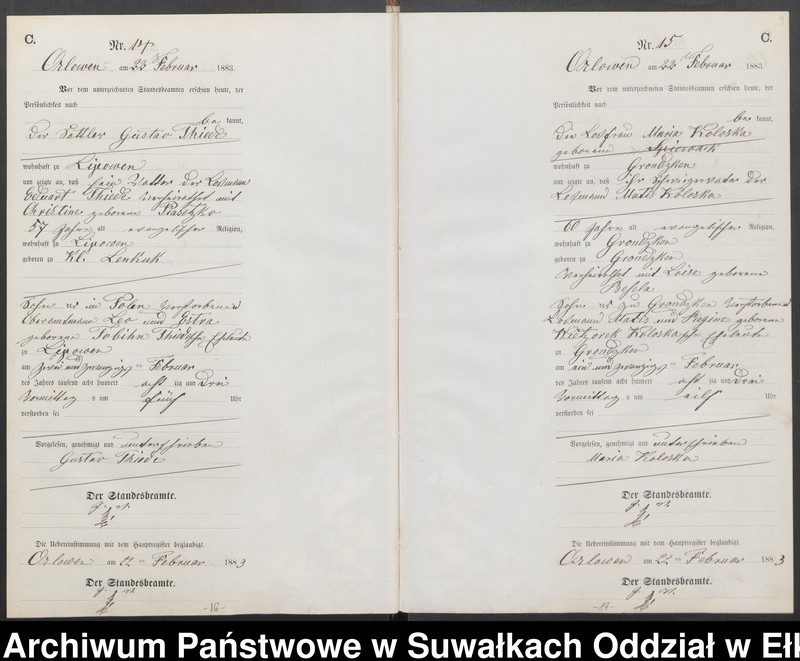 C.
Nr. 14
Orlowen am 22 Februar 1883.
Vor dem unterzeichneten Standesbeamten erschien heute, der
Persönlichkeit nach
be kannt,
der Sattler Gustav Thiede
wohnhaft zu Lipowen
und zeigte an, daß sein Vatter der Losmann
Eduart Thiede verheirathet mit
Christine geborene Piasetzko
57 Jahre alt evangelischer Religion,
wohnhaft zu Lipowen
geboren zu Kl. Lenkuk
Sohn der in Polen verstorbenen
Oberamtmann Leo und Estra
geborene Tobihn Thiedesche Eheleute
zu Lipowen
am zwei und zwanzigs ten Februar
des Jahres tausend acht hundert acht zig und drei
Vormittag s um fünf Uhr
verstorben sei
Vorgelesen, genehmigt und unterschrieben
Gustav Thiede
Der Standesbeamte.
Die Uebereinstimmung mit dem Hauptregister beglaubigt.
Orlowen am 22 ten Februar 1883
Der Standesbeamte.
-16-
C.
Nr. 15
Orlowen am 22 Februar 1883.
Vor dem unterzeichneten Standesbeamten erschien heute, der
Persönlichkeit nach
be kannt,
die Losfrau Maria Koloska
geborene
wohnhaft zu Grondzken
und zeigte an, daß ihr Schwiegervater der
Losmann Matis Koloska
60 Jahre alt evangelischer Religion,
wohnhaft zu Grondzken
geboren zu Grondzken
verheirathet mit Loise geborene
Besela
Sohn der zu Grondzken verstorbenen
Losmann Matis und Regine geborene
Koloskasche Eheleute
zu Grondzken
am ein und zwanzigs ten Februar
des Jahres tausend acht hundert acht zig und drei
Vormittag s um eilf Uhr
verstorben sei
Vorgelesen, genehmigt und unterschrieben
Maria Koloska
Der Standesbeamte.
Die Uebereinstimmung mit dem Hauptregister beglaubigt.
Orlowen am 22 ten Februar 1883
Der Standesbeamte.
-17-
Archiwum Państwowe w Suwałkach Oddział w Ełk